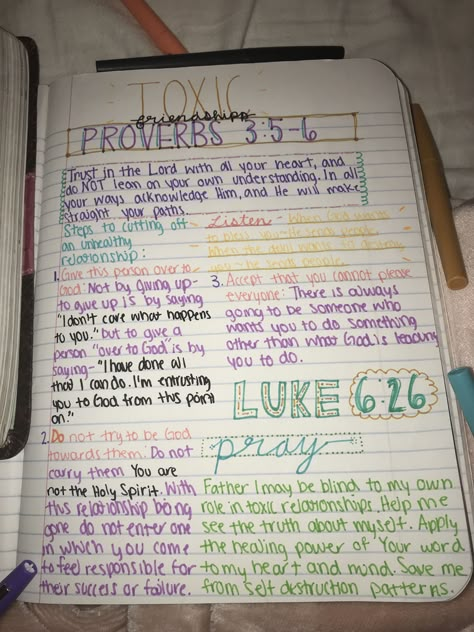 TOXIC
friendships
PROVERBS 3:5-6
Trust in the Lord with all your heart, and
do NOT lean on your own understanding. In all
your ways acknowledge Him, and He will make
straight your paths.
Steps to cutting off
an unhealthy
relationship:
1. Give this person over to
God: Not by giving up-
to give up is by saying
"I don't care what happens
to you." but to give a
person "over to God" is by
saying- "I have done all
that I can do. I'm entrusting
you to God from this point
on."
2. Do not try to be God
towards them. Do not
carry them You are
not the Holy Spirit. With
this relationship being
gone do not enter one
in which you come
to feel responsible for
their success or failure.
Listen - When God wants
to bless you - He sends people.
When the devil wants to destroy
you - he sends people.
3. Accept that you cannot please
everyone: There is always
going to be someone who
wants you to do something
other than what God is leading
you to do.
LUKE 6:26
pray
Father I may be blind to my own
role in toxic relationships. Help me
see the truth about myself. Apply
the healing power of Your word
to my heart and mind. Save me
from self destruction patterns.